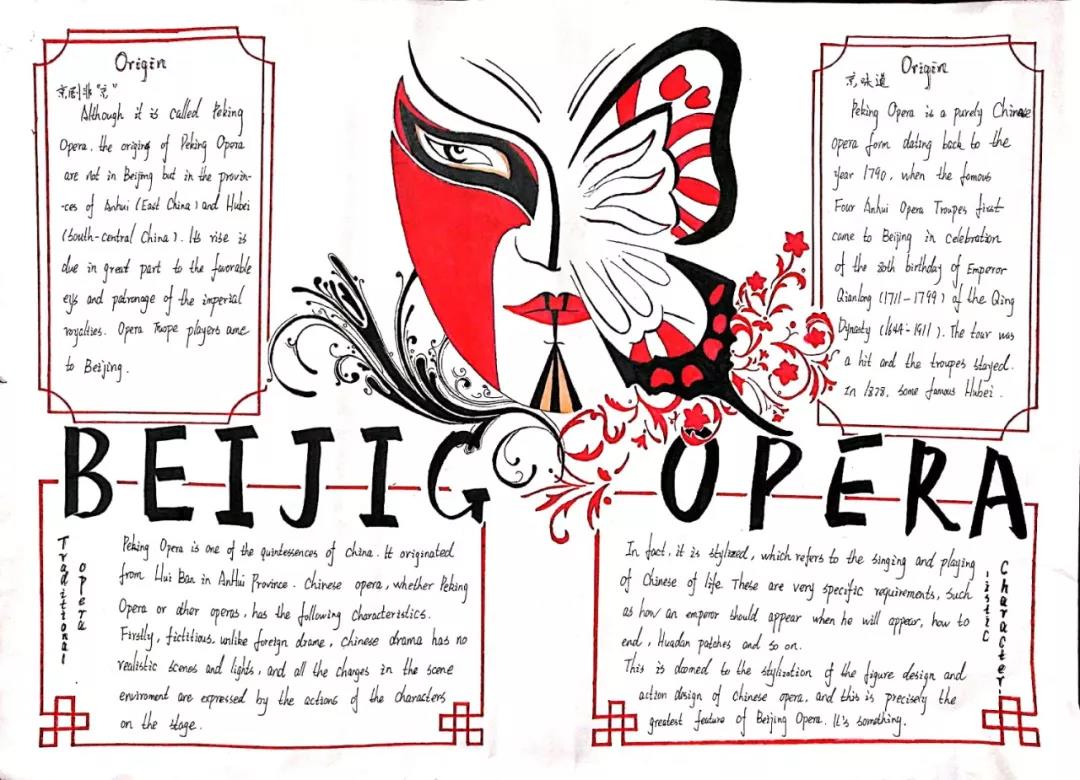 Origin
京剧非“京”
Although it is called Peking
Opera, the origing of Peking Opera
are not in Beijing but in the provin-
-ces of Anhui (East China) and Hubei
(South-central China). It's rise is
due in great part to the favorable
eys and patronage of the imperial
royalties. Opera Trope players came
to Beijing.
Origin
京味道
Peking Opera is a purely Chinese
opera form dating back to the
year 1790, when the famous
Four Anhui Opera Troupes first
came to Beijing in celebration
of the 80th birthday of Emperor
Qianlong (1711-1799) of the Qing
Dynasty (1644-1911). The tour was
a hit and the troupes stayed.
In 1828, some famous Hubei.
BEIJIG OPERA
Traditional
opera
Peking Opera is one of the quintessences of China. It originated
from Hui Ban in AnHui Province. Chinese opera, whether Peking
Opera or other operas, has the following characteristics.
Firstly, fictitious. unlike foreign drame, chinese drama has no
realistic scenes and lights, and all the changes in the scene
enviroment are expressed by the actions of the characters
on the stage.
In fact, it is stylized, which refers to the singing and playing
of Chinese of life. These are very specific requirements, such
as how an emperor should appear when he will appear, how to
end, Huadan patches and so on.
This is doomed to the stylization of the figure design and
action design of chinese opera, and this is precisely the
greatest feature of Beijing Opera. It's something.
Character-
-istic